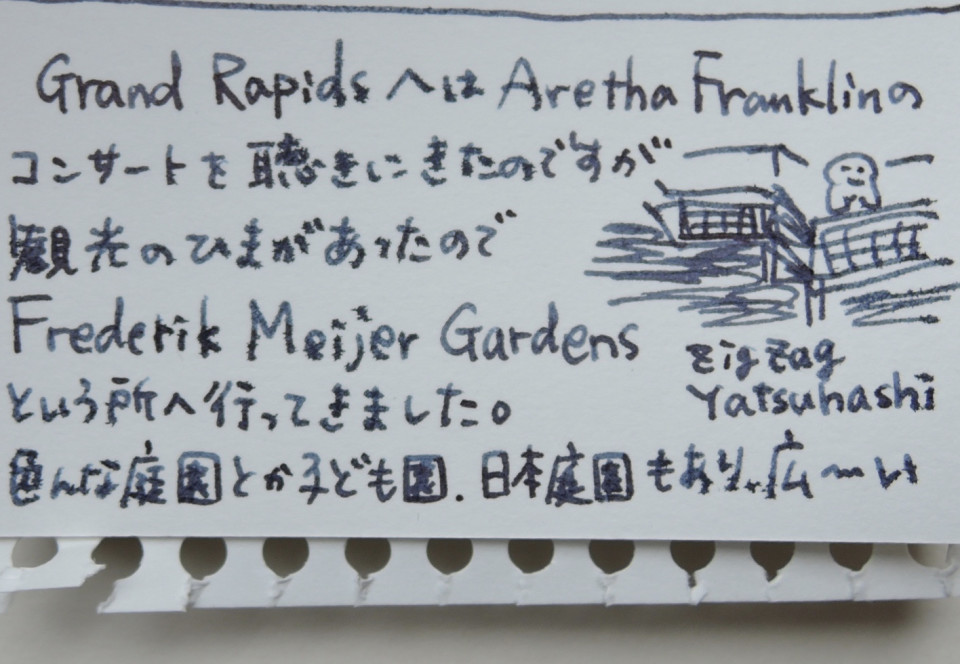 Grand Rapids へは Aretha Franklinの
コンサートを聴きにきたのですが
観光のひまがあったので
Frederik Meijer Gardens
という所へ行ってきました。
色んな庭園とか子ども園、日本庭園もあり、広〜い
zig zag
Yatsuhashi